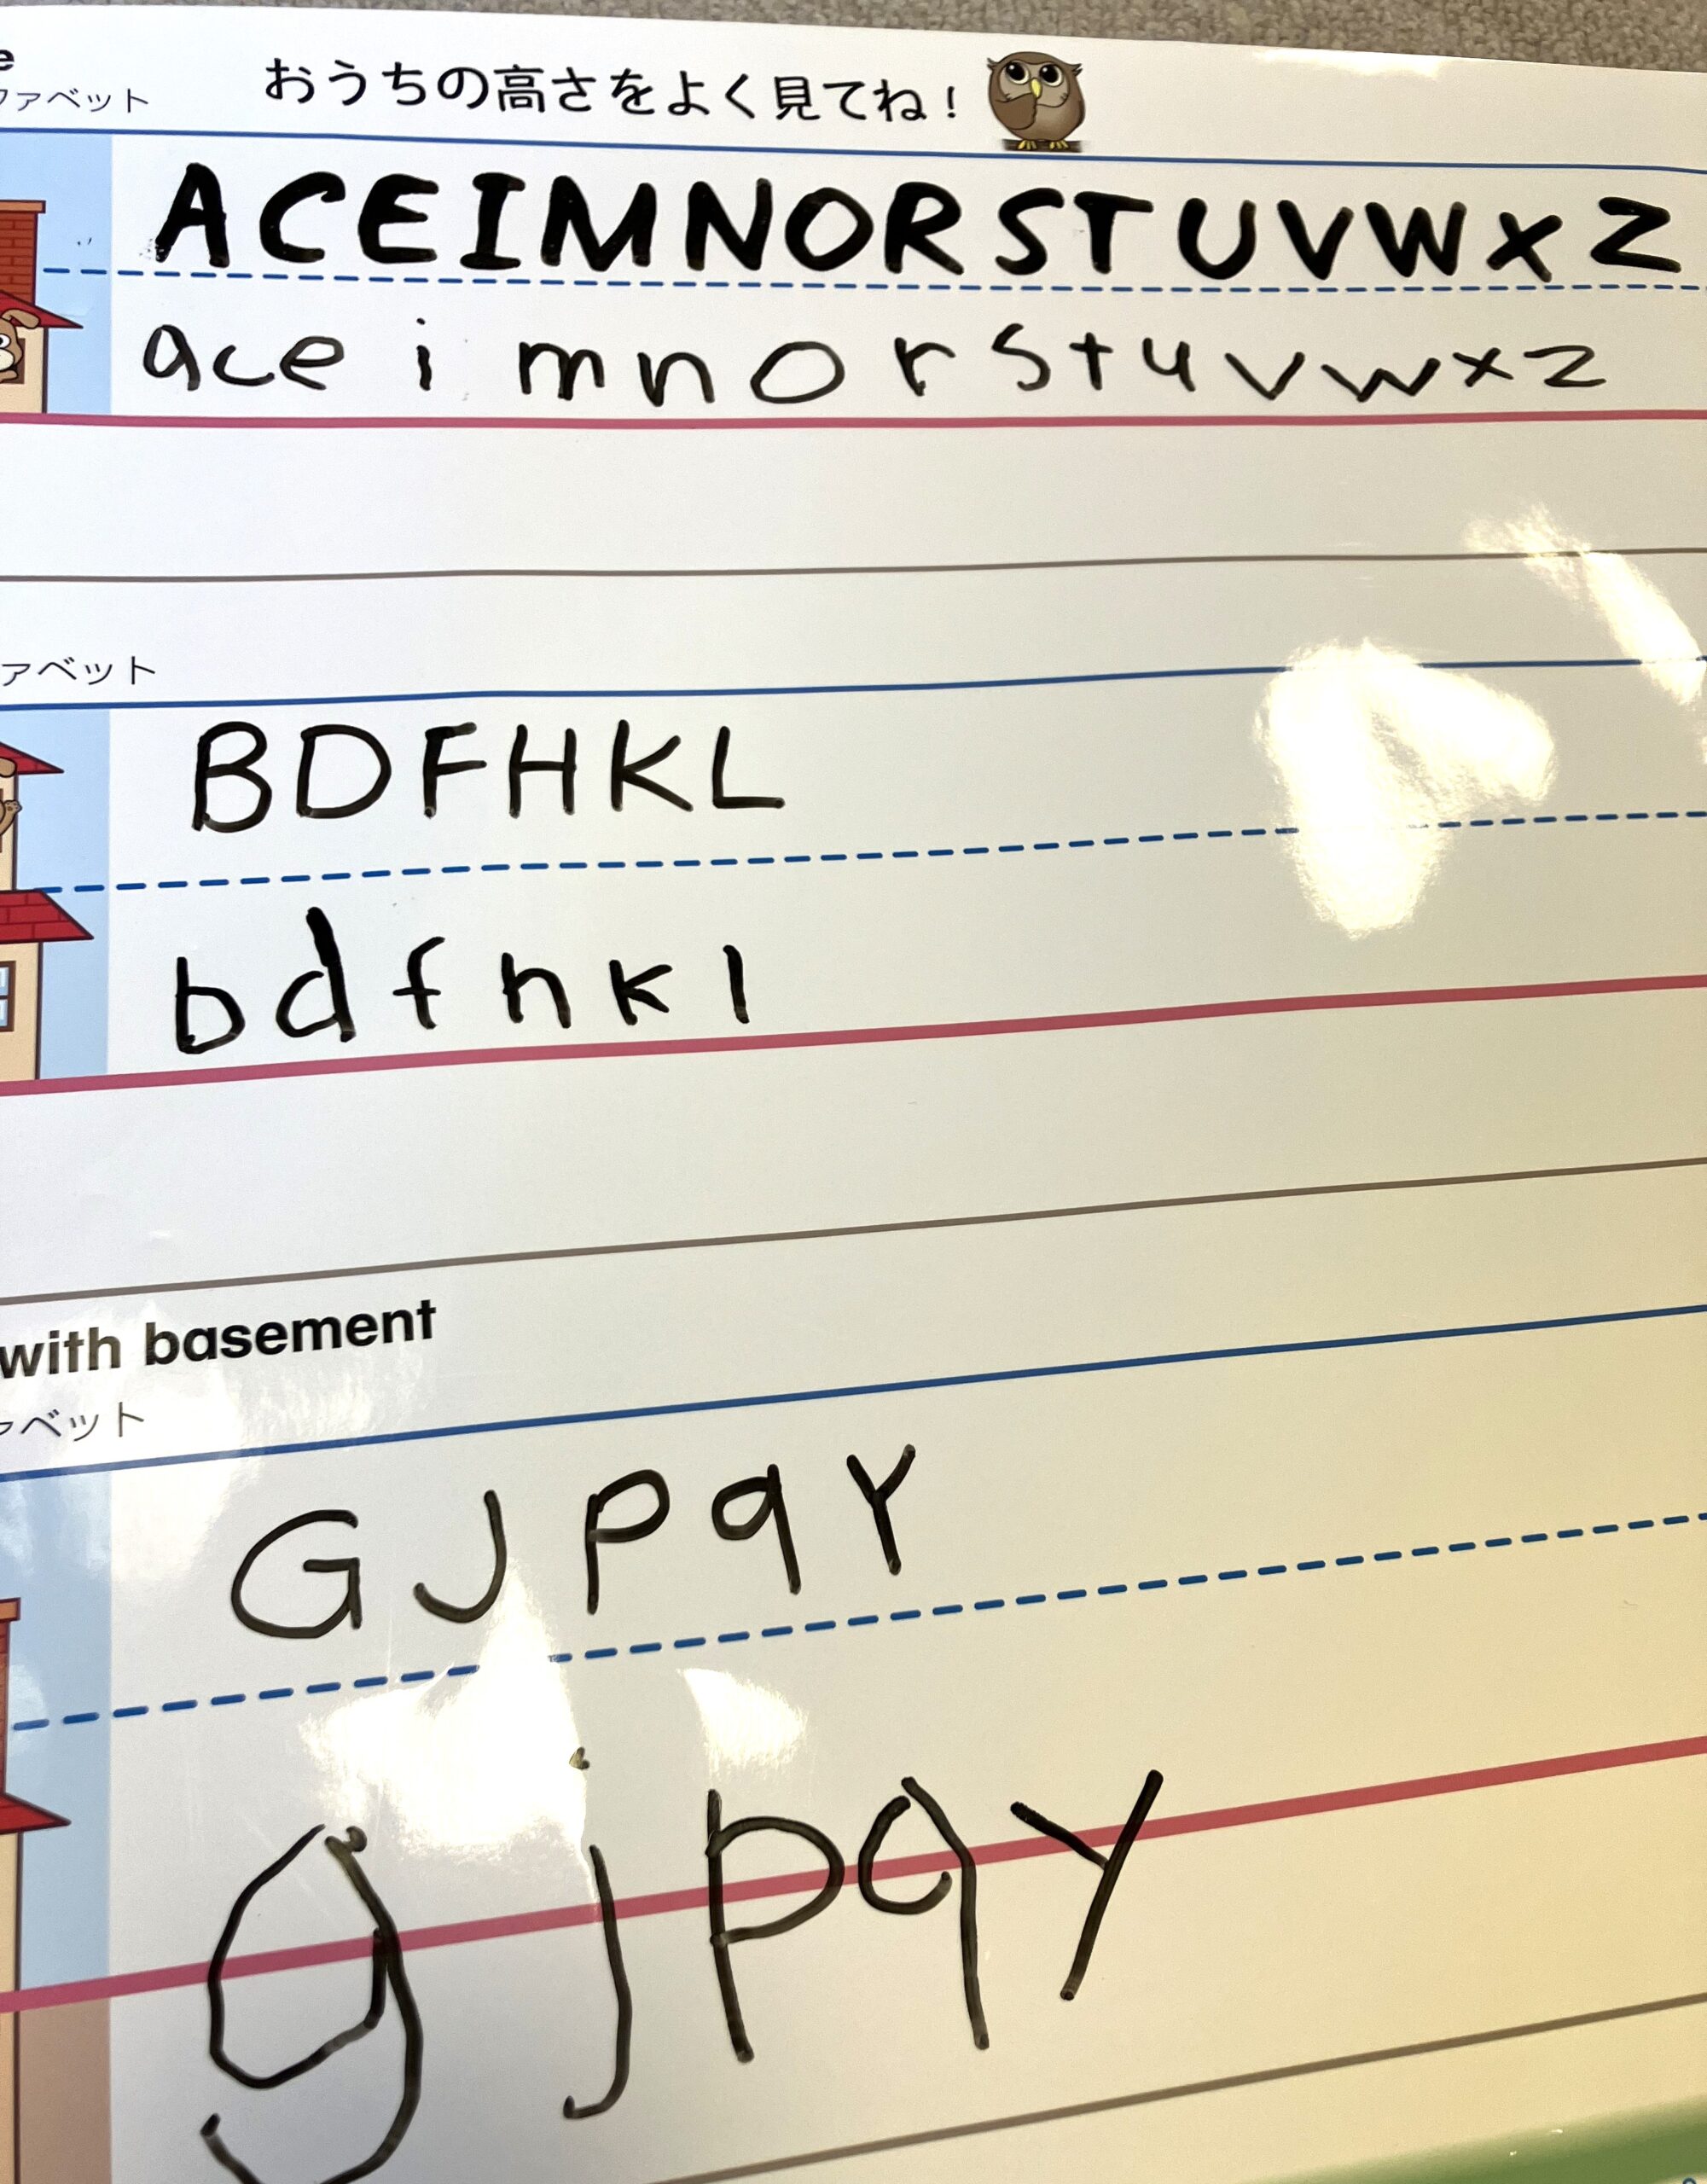 e
ファベット
おうちの高さをよく見てね！
ACEIMNORSTUVWXZ
ace i mnorstuvwxz
ァベット
BDFHKL
bdfhkl
with basement
ァベット
GJPqY
gjpqy